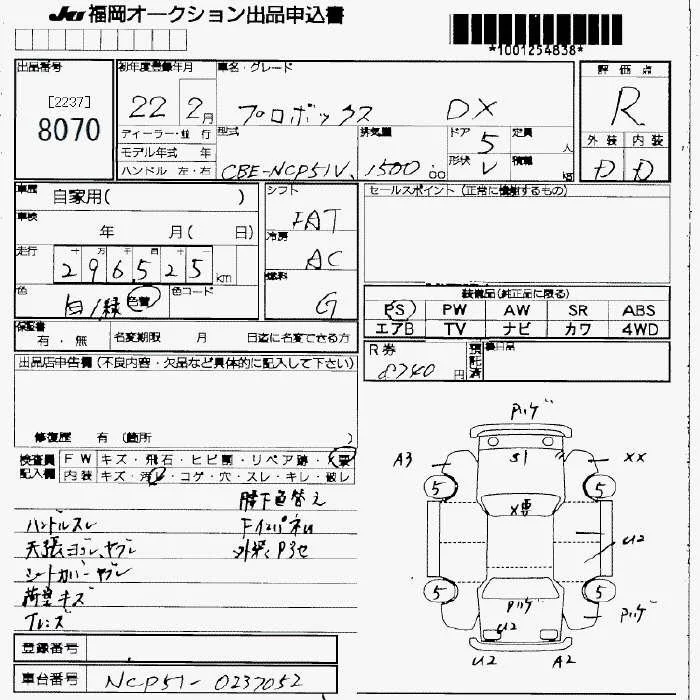 JU 福岡オークション出品申込書
*1001254838*
出品番号
[2237]
8070
初年度登録年月
22年 2月
ディーラー・並行
モデル年式 年
ハンドル 左・右
車名・グレード
プロボックス DX
型式
CBE-NCP51V
排気量
1500 cc
ドア 5
形状 V
定員 人
積載 kg
評価点
R
外装 内装
D D
車歴 自家用( )
車検 年 月( 日)
走行
十 万 千 百 十
296525 km
色
白/緑 色替
色コード
シフト
FAT
冷房
AC
燃料
G
セールスポイント (正常に機能するもの)
装備品(純正品に限る)
PS PW AW SR ABS
エアB TV ナビ カワ 4WD
保証書
有・無
名変期限 月 日迄に名変できる方
R券
8740 円
預託済
出品店申告欄(不良内容・欠品など具体的に記入して下さい)
修復歴 有(箇所 )
検査員記入欄
FW キズ・飛石・ヒビ割・リペア跡・X要
内装 キズ・汚レ・コゲ・穴・スレ・キレ・破レ
ハンドルスレ
天張ヨゴレ、ヤブレ
シートカバーヤブレ
荷室キズ
腰下色替え
ハゲ
A3
S1
XX
5
5
X要
U2
5
5
ハゲ
ハゲ
U2
U2
A2
登録番号
車台番号 NCP51-0237052